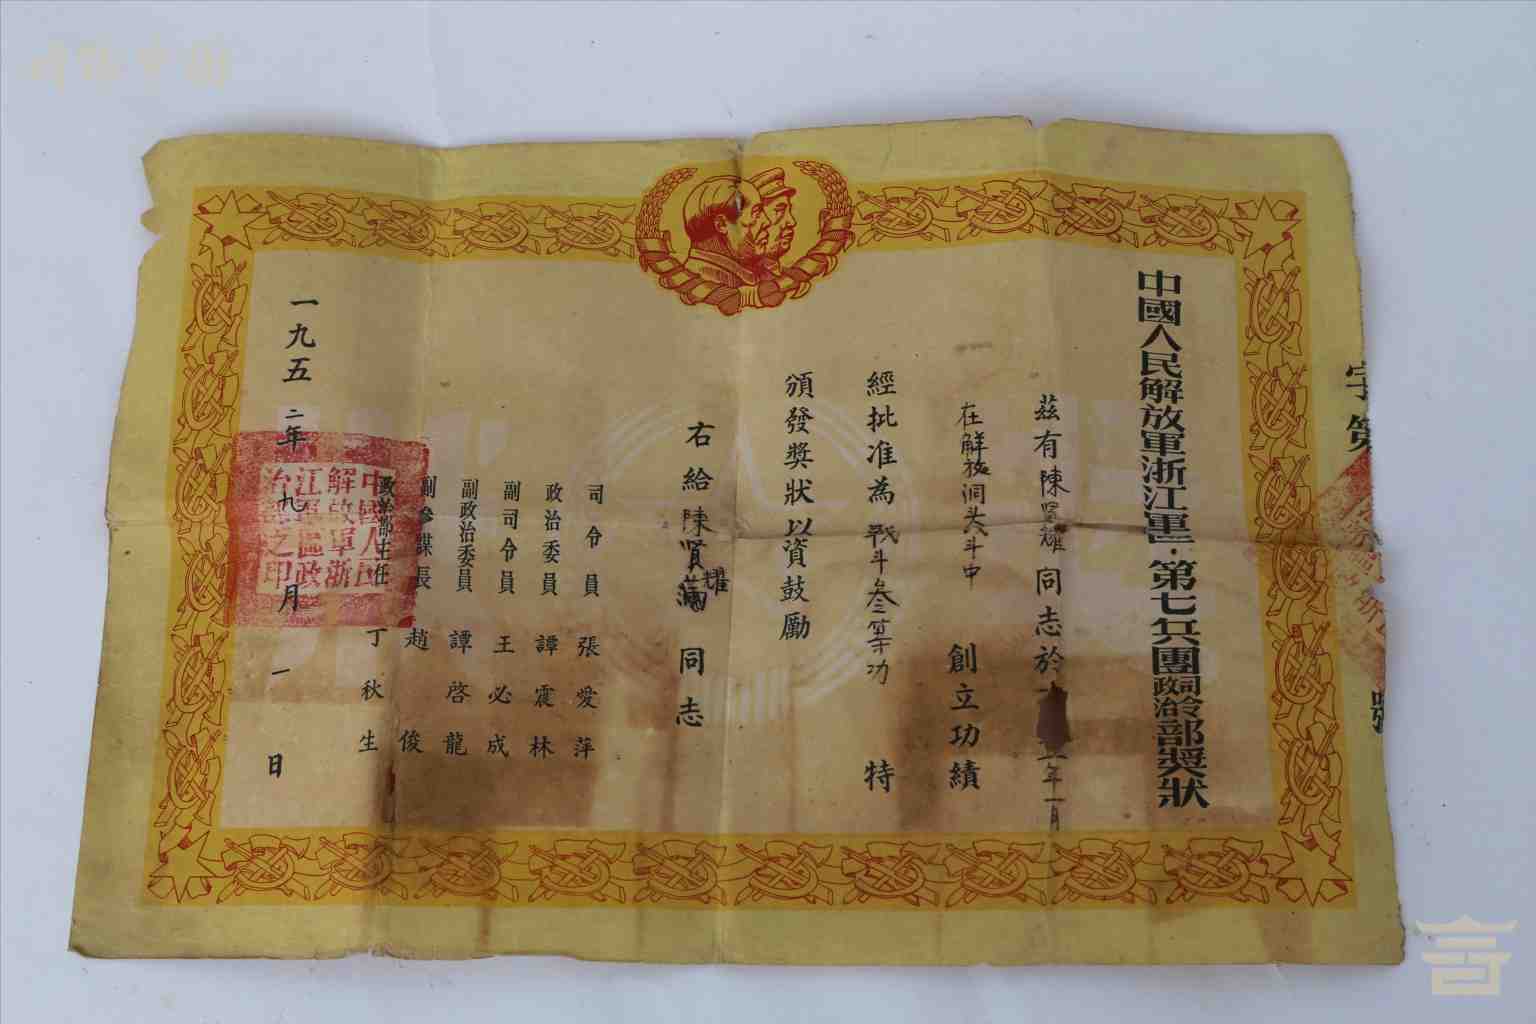 字第
號
中國人民解放軍浙江軍區·第七兵團司令政治部獎狀
茲有陳賢耀同志於
五年一月
在解放洞头斗中 創立功績
經批准為戰斗叁等功 特
頒發獎狀以資鼓勵
右給陳贤耀同志
司令員 張愛萍
政治委員 譚震林
副司令員 王必成
副政治委員 譚啓龍
副參謀長 趙俊
政治部主任 丁秋生
一九五二年九月一日
中國人民解放軍浙江軍區政治部之印